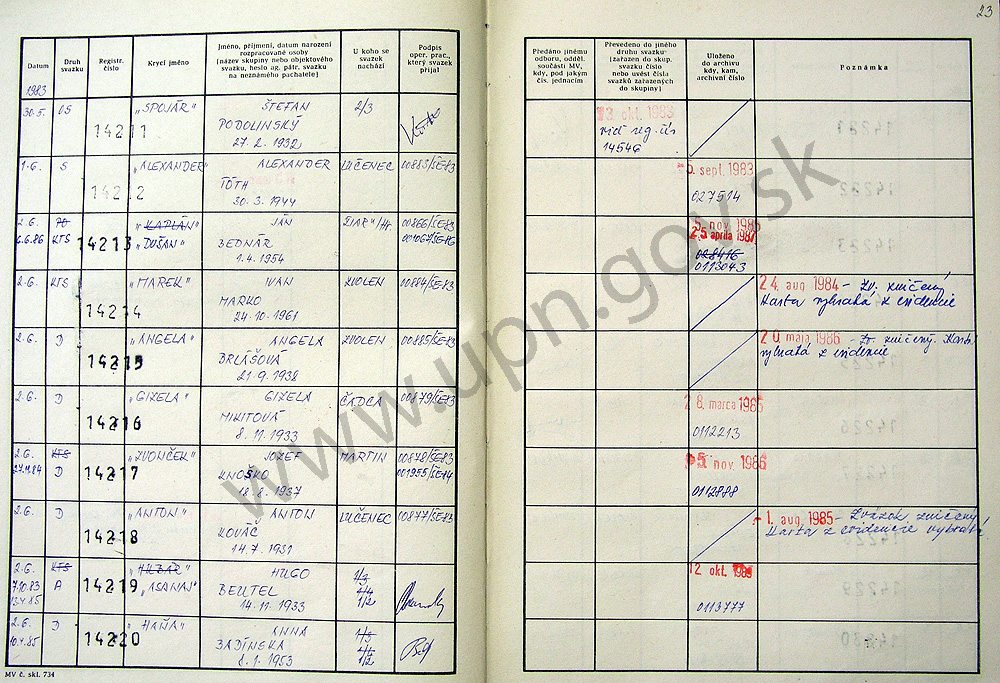 23
Datum
Druh svazku
Registr. číslo
Krycí jméno
Jméno, příjmení, datum narození rozpracované osoby [název skupiny nebo objektového svazku, heslo ag. pátr. svazku na neznámého pachatele]
U koho se svazek nachází
Podpis oper. prac., který svazek přijal
Předáno jinému odboru, odděl. součásti MV, kdy, pod jakým čís. jednacím
Převedeno do jiného druhu svazku [zařazen do skup. svazku číslo nebo uvést čísla svazků zařazených do skupiny]
Uloženo do archivu kdy, kam, archivní číslo
Poznámka
1983
30.5. OS 14211 „SPOJÁR" ŠTEFAN 2/3
PODOLINSKÝ
27. 2. 1932
13. okt. 1983
viď reg. čís
14546
1.6. S 14212 „ALEXANDER" ALEXANDER LUČENEC 00883/ŠE-83
TÓTH
30. 3. 1944
5. sept. 1983
027514
2.6. PO 14213 „KAPLÁN" JÁN ŽIAR n/Hr. 00866/ŠE-83
6.6.86 KTS „DUŠAN" BEDNÁR 001067/ŠE-86
1. 4. 1954
5. nov. 1985
25. apríla 1987
028416
0113043
2.6. KTS 14214 „MAREK" IVAN ZVOLEN 00884/ŠE-83
MARKO
24. 10. 1961
24. aug. 1984 - Zv. zničený
Karta vybratá z evidencie
2.6. D 14215 „ANGELA" ANGELA ZVOLEN 00885/ŠE-83
BRLÁŠOVÁ
21. 9. 1938
20. mája 1986 - Zv. zničený. Karta
vybratá z evidencie
2.6. D 14216 „GIZELA" GIZELA ČADCA 00879/ŠE-83
MIKITOVÁ
8. 11. 1933
28. marca 1985
0112213
2.6. KTS 14217 „ZVONČEK" JOZEF MARTIN 00878/ŠE-83
27.11.84 D KNOŠKO 001955/ŠE-84
18. 8. 1937
5. nov. 1986
0112888
2.6. D 14218 „ANTON" ANTON LUČENEC 00877/ŠE-83
KOVÁČ
14. 7. 1931
1. aug. 1985 - Zväzok zničený
Karta z evidencie vybratá.
2.6. KTS 14219 HUGO 1/3
7.10.83 A „ASANAJ" BEUTEL 2/4
13.4.85 14. 11. 1933 1/2
12. okt.
0113777
2.6. D 14220 „HAŇA" ANNA 1/3
10.4.85 BADÍNSKA 2/4
8. 1. 1953 1/2
MV č. skl. 734
www.upn.gov.sk